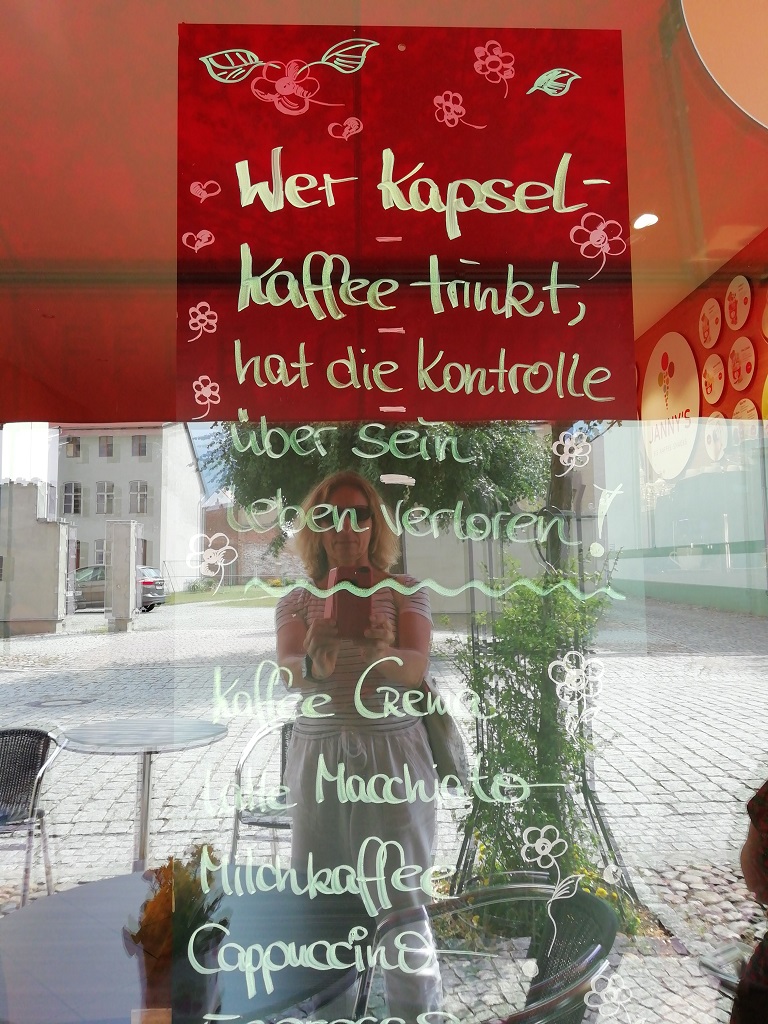 Wer Kapsel-
Kaffee trinkt,
hat die Kontrolle
über sein
Leben verloren!
Kaffee Crema
Latte Macchiato
Milchkaffee
Cappuccino
JANNY'S